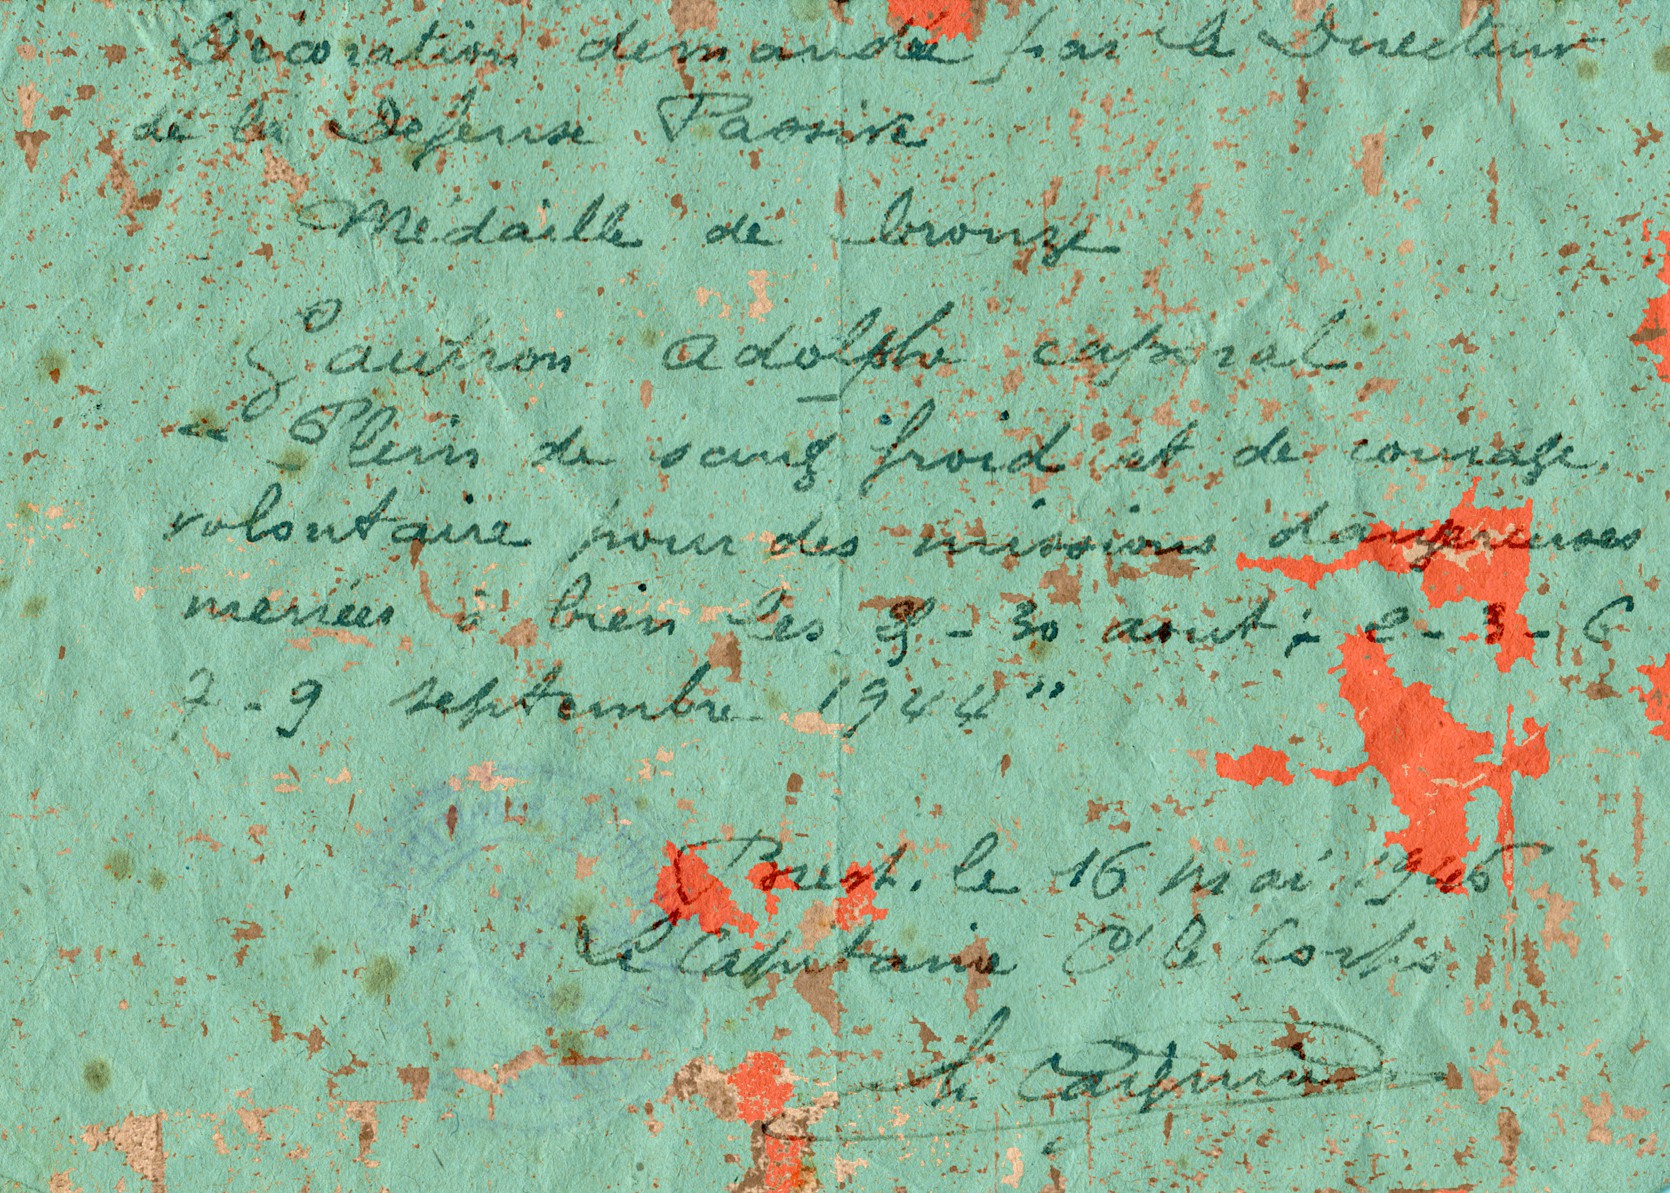 Décoration demandée par le Directeur
de la Défense Passive
Médaille de bronze
Gautron Adolphe caporal
"Plein de sang froid et de courage,
volontaire pour des missions dangereuses
menées à bien les - 30 aout ; 2 - 3 - 6
7 - 9 septembre 1944"
Brest, le 16 mai 1945
Le Capitaine Ct le Corps